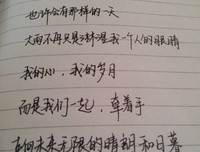 也许会有那样的一天
大雨不再只是淋湿我一个人的眼睛
我的心,我的岁月
而是我们一起,牵着手
在向未来无限的晴朗和日暮